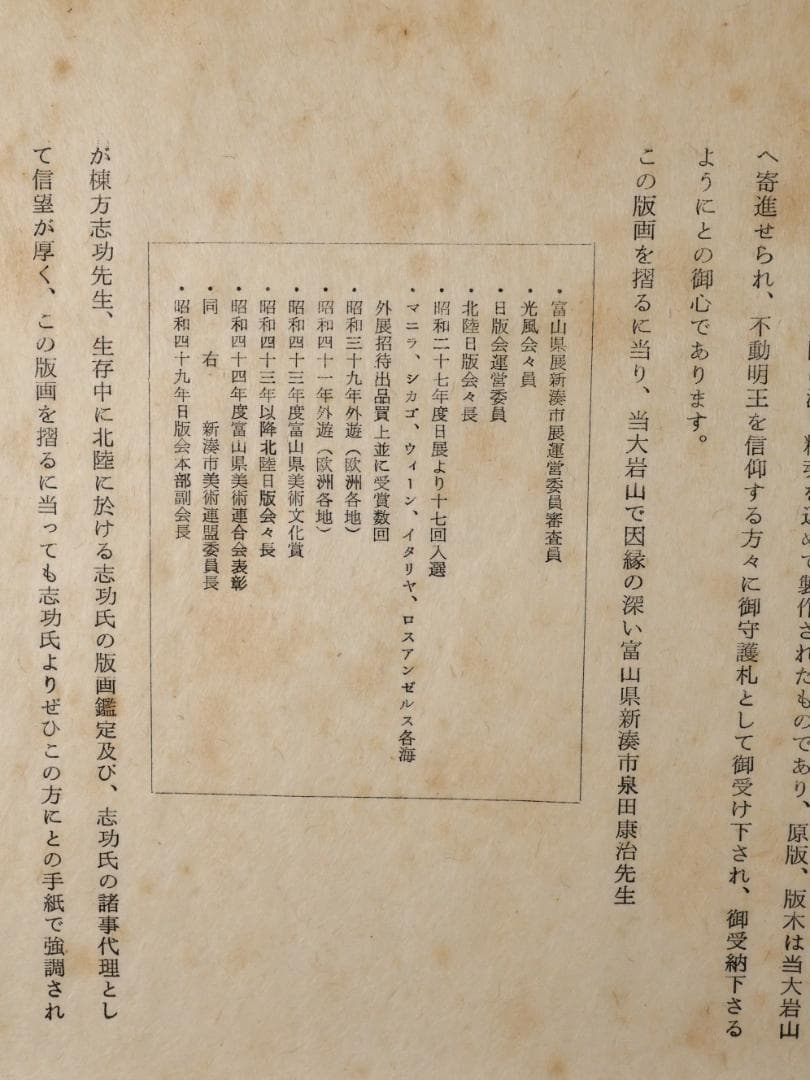 精魂を込めて製作されたものであり、原版、版木は当大岩山
へ寄進せられ、不動明王を信仰する方々に御守護札として御受け下され、御受納下さる
ようにとの御心であります。
この版画を摺るに当り、当大岩山で因縁の深い富山県新湊市泉田康治先生
・富山県展新湊市展運営委員審査員
・光風会々員
・日版会運営委員
・北陸日版会々長
・昭和二十七年度日展より十七回入選
・マニラ、シカゴ、ウィーン、イタリヤ、ロスアンゼルス各海
外展招待出品買上並に受賞数回
・昭和三十九年外遊（欧洲各地）
・昭和四十一年外遊（欧洲各地）
・昭和四十三年度富山県美術文化賞
・昭和四十三年以降北陸日版会々長
・昭和四十四年度富山県美術連合会表彰
・同　右　新湊市美術連盟委員長
・昭和四十九年日版会本部副会長
が棟方志功先生、生存中に北陸に於ける志功氏の版画鑑定及び、志功氏の諸事代理とし
て信望が厚く、この版画を摺るに当っても志功氏よりぜひこの方にとの手紙で強調され